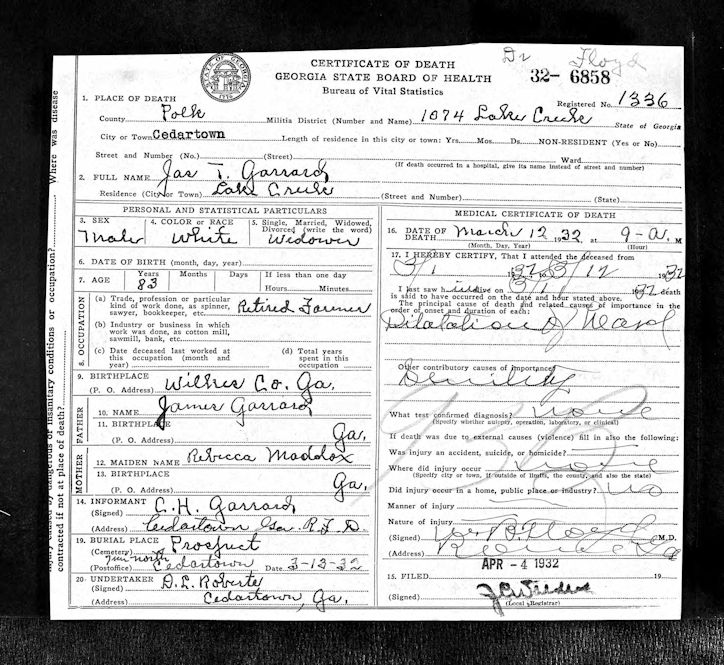 Dr Floyd
CERTIFICATE OF DEATH
GEORGIA STATE BOARD OF HEALTH
Bureau of Vital Statistics
32- 6858
Registered No. 1336
1. PLACE OF DEATH
County Polk Militia District (Number and Name) 1074 Lake Creek State of Georgia
City or Town Cedartown Length of residence in this city or town: Yrs. Mos. Ds. NON-RESIDENT (Yes or No)
Street and Number (No.) (Street) Ward
(If death occurred in a hospital, give its name instead of street and number)
2. FULL NAME Jas T. Garrard
Residence (City or Town) Lake Creek (Street and Number) (State)
PERSONAL AND STATISTICAL PARTICULARS
3. SEX Male
4. COLOR or RACE White
5. Single, Married, Widowed, Divorced (write the word) Widower
6. DATE OF BIRTH (month, day, year)
7. AGE Years 83 Months Days If less than one day Hours Minutes
8. OCCUPATION
(a) Trade, profession or particular kind of work done, as spinner, sawyer, bookkeeper, etc. Retired Farmer
(b) Industry or business in which work was done, as cotton mill, sawmill, bank, etc.
(c) Date deceased last worked at this occupation (month and year)
(d) Total years spent in this occupation
9. BIRTHPLACE
(P. O. Address) Wilkes Co. Ga.
FATHER
10. NAME James Garrard
11. BIRTHPLACE
(P. O. Address) Ga.
MOTHER
12. MAIDEN NAME Rebecca Maddox
13. BIRTHPLACE
(P. O. Address) Ga.
14. INFORMANT
(Signed) C. H. Garrard
(Address) Cedartown Ga. R.F.D.
19. BURIAL PLACE
(Cemetery) Prospect
7 mi north
(Postoffice) Cedartown Date 3-13-32
20. UNDERTAKER D. L. Roberts
Cedartown, Ga.
MEDICAL CERTIFICATE OF DEATH
16. DATE OF DEATH March 12 1932, at 9-A. M
(Month, Day, Year) (Hour)
17. I HEREBY CERTIFY, That I attended the deceased from
3/1 1932 to 3/12 1932
I last saw him alive on 3/1 1932 death
is said to have occurred on the date and hour stated above.
The principal cause of death and related causes of importance in the order of onset and duration of each:
Dilatation of Heart
Other contributory causes of importance:
Senility
What test confirmed diagnosis? none
(Specify whether autopsy, operation, laboratory, or clinical)
If death was due to external causes (violence) fill in also the following:
Was injury an accident, suicide, or homicide?
Where did injury occur
(Specify city or town, if outside of limits, the county, and also the state)
Did injury occur in a home, public place or industry? no
Manner of injury
Nature of injury
(Signed) Wm. B. Floyd M.D.
(Address) Rome Ga
APR - 4 1932
15. FILED 19
(Signed)
(Local Registrar)
Where was disease
contracted if not at place of death?
dangerous or insanitary conditions or occupation?